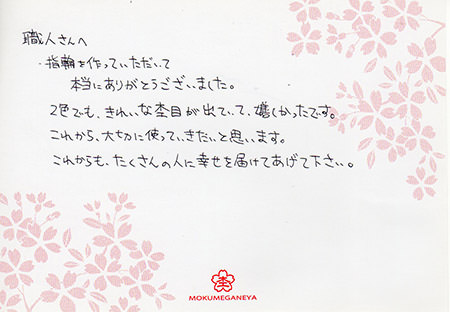 職人さんへ
・指輪を作っていただいて
本当にありがとうございました。
2色でも、きれいな杢目が出ていて、嬉しかったです。
これから、大切に使っていきたいと思います。
これからも、たくさんの人に幸せを届けてあげて下さい。
杢
MOKUMEGANEYA